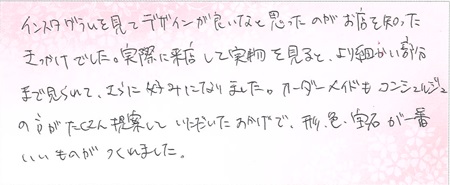 インスタグラムを見てデザインが良いなと思ったのがお店を知った
きっかけでした。実際に来店して実物を見ると、より細かい部分
まで見られて、さらに好みになりました。オーダーメイドもコンシェルジュ
の方がたくさん提案していただいたおかげで、形、色、宝石が一番
いいものがつくれました。